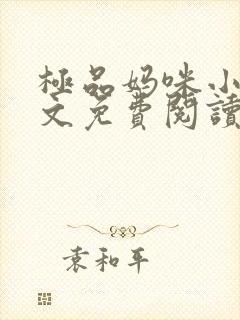 極品妈咪小
文免費閱讀
袁和平